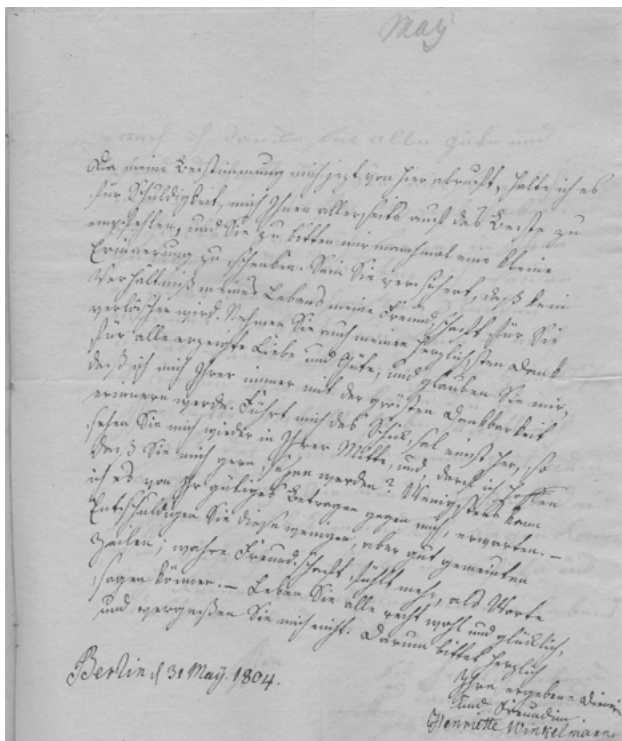 May
Da meine Bestimmung mich jezt von hier abruft, halte ich es
für Schuldigkeit, mich Ihnen allerseits auf das Beste zu
empfehlen, und Sie zu bitten mir manchmal eine kleine
Erinnerung zu schenken. Sein Sie versichert, daß kein
Verhältniß meines Lebens meine Freundschaft für Sie
verlöschen wird. Nehmen Sie auch meinen herzlichsten Dank
für alle erzeigte Liebe und Güte, und glauben Sie mir,
daß ich mich Ihrer immer mit der größten Dankbarkeit
erinnern werde. Führt mich das Schicksal einst her, so
sehen Sie mich wieder in Ihrer Mitte, und darf ich hoffen
daß Sie mich gern sehen werden? Wenigstens kann
ich es von Ihr gütiges Betragen gegen mich, erwarten. –
Entschuldigen Sie diese wenigen, aber gut gemeinten
Zeilen; wahre Freundschaft fühlt mehr, als Worte
sagen können. – Leben Sie alle recht wohl und glücklich,
und vergeßen Sie mich nicht. Darum bittet herzlich
Ihre ergebene Dienerin
und Freundin.
Henriette Winkelmann
Berlin d 30 May 1804.